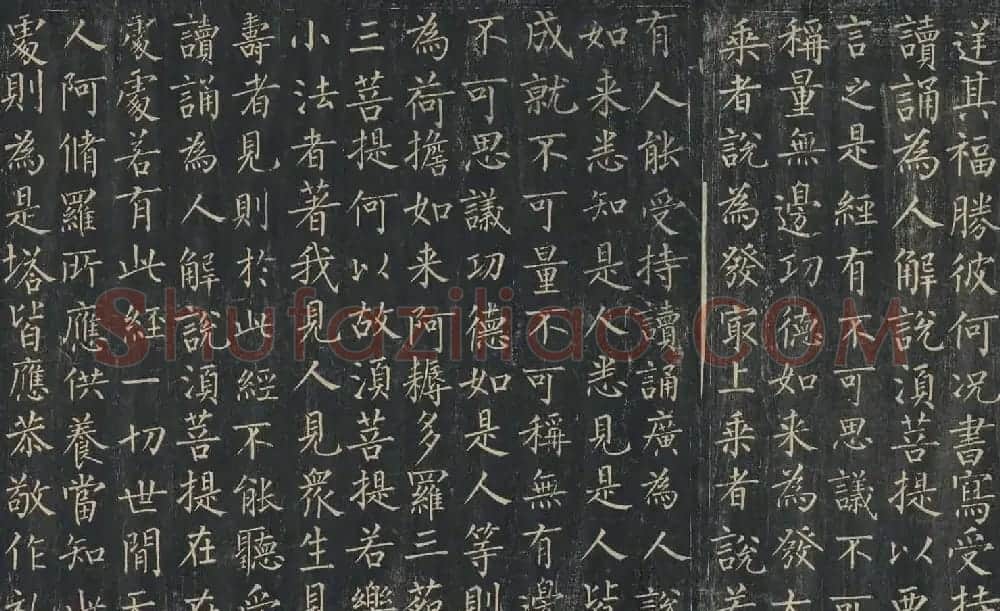 逆其福勝彼何况書寫受持
讀誦為人解說湏菩提以要
言之是經有不可思議不可
稱量無邊功德如来為發大
乘者說為發冣上乘者說若
有人能受持讀誦廣為人說
如来悉知是人悉見是人皆
成就不可量不可稱無有邊
不可思議功德如是人等則
為荷擔如来阿耨多羅三藐
三菩提何以故湏菩提若樂
小法者著我見人見衆生見
壽者見則於此經不能聽受
讀誦為人解說湏菩提在在
處處若有此經一切世間天
人阿脩羅所應供養當知此
處則為是塔皆應恭敬作礼
Shufaziliao.COM